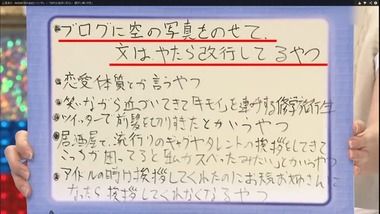 ブログに空の写真をのせて、
文はやたら改行してるやつ
恋愛体質とか言うやつ
笑いながら近づいてきて
修学旅行生
ツイッターで前髪を切りすぎたとかいうやつ
居酒屋で、流行りのギャグやタレントの挨拶をしてきて
こっちが困ってると
とかいうやつ
アイドルの時は挨拶してくれたのにお天気お姉さんに
なったら挨拶してくれなくなるやつ